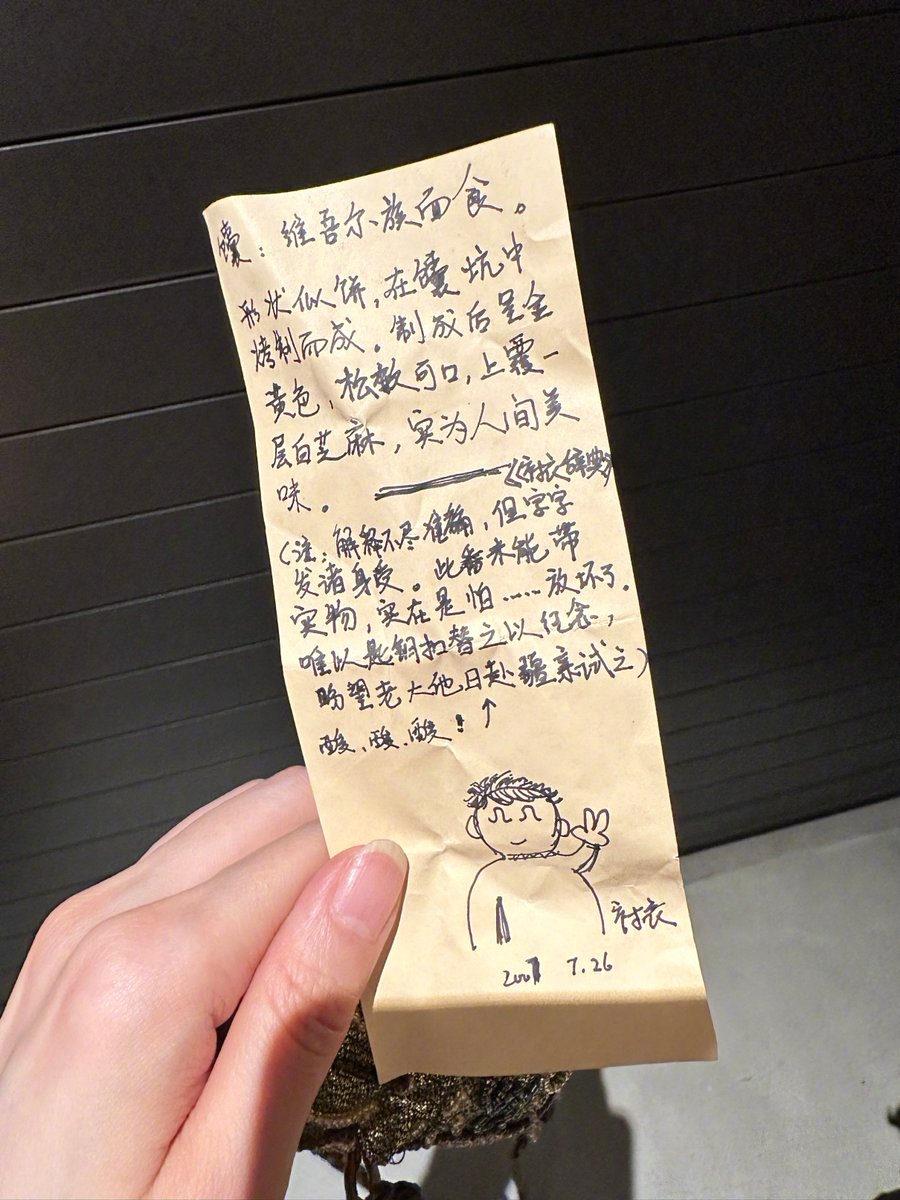 馕：维吾尔族面食。
形状似饼，在馕坑中
烤制而成。制成后呈金
黄色，松软可口，上覆一
层白芝麻，实为人间美
味。——《衬衣辞典》
（注：解释不尽准确，但字字
发诸身受。此番未能带
实物，实在是怕……放坏了.
唯以匙钥扣替之以纪念，
盼望老大他日赴疆亲试之）
酸、酸、酸！↑
衬衣
2007 7.26